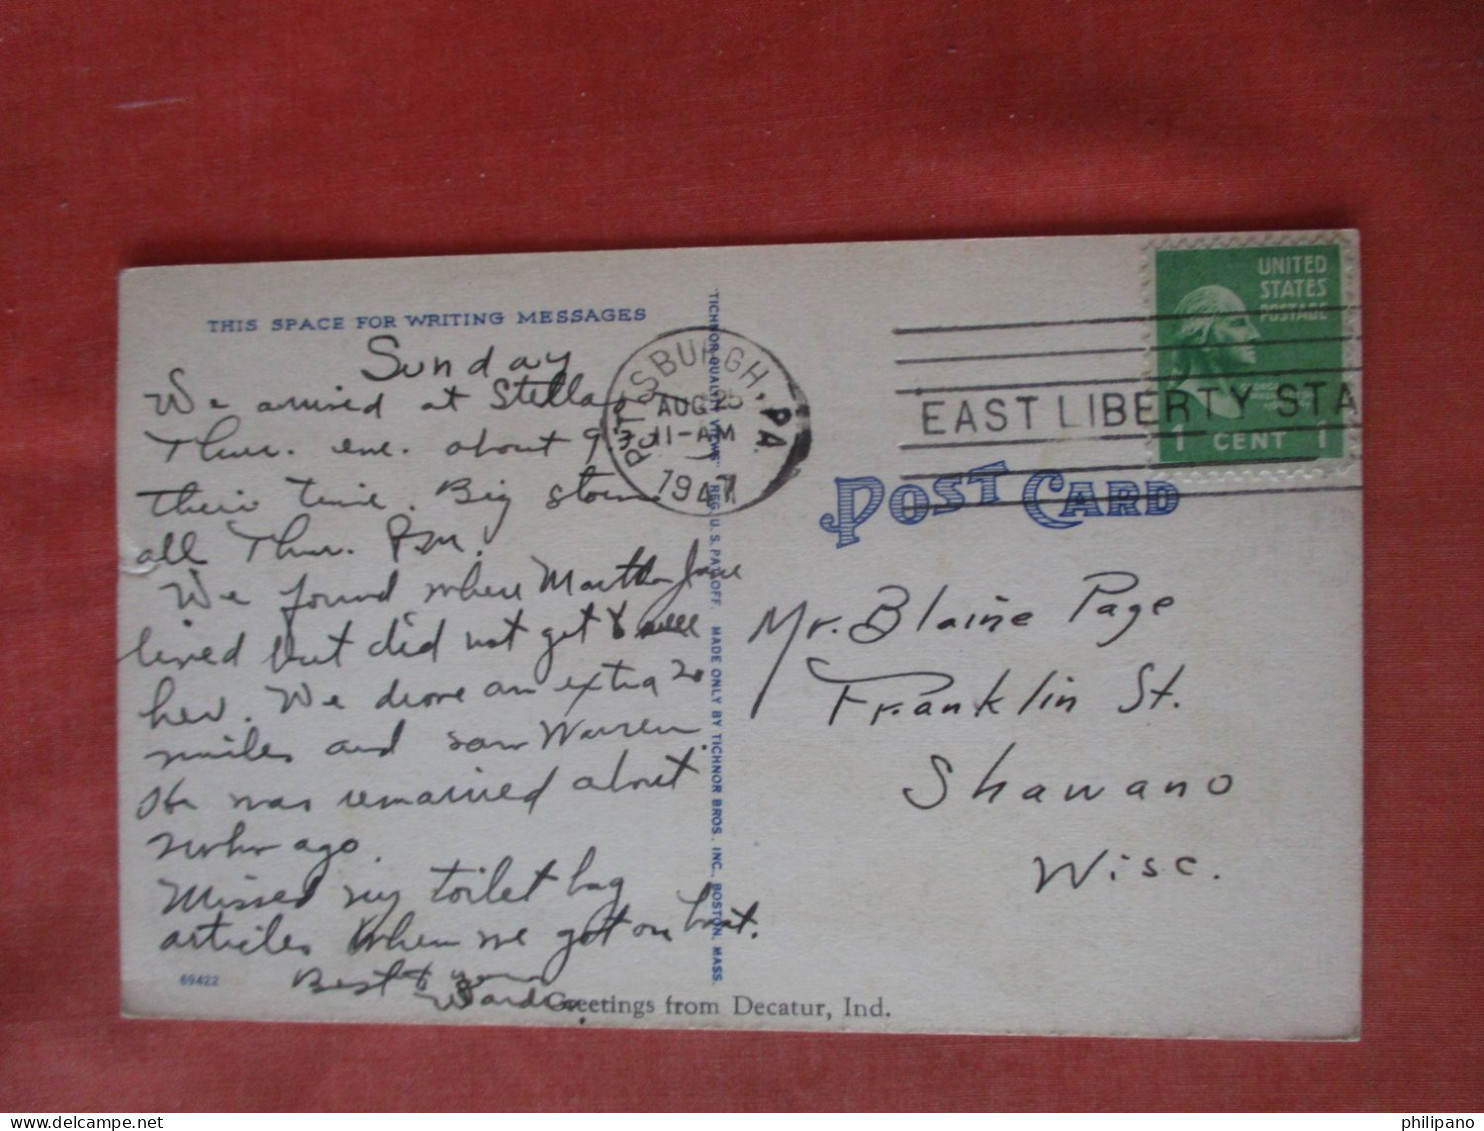 THIS SPACE FOR WRITING MESSAGES
Sunday
We arrived at Stellas
Thur. eve. about 9
their time. Big storm
all Thur. P.M.
We found where Martha Jane
lived but did not get to see
her. We drove an extra 20
miles and saw Warren.
He was remarried about
ago.
Missed my toilet bag
articles when we got on boat.
Best to you
69422
Greetings from Decatur, Ind.
"TICHNOR QUALITY VIEWS" REG. U. S. PAT. OFF. MADE ONLY BY TICHNOR BROS. INC., BOSTON, MASS.
PITTSBURGH, PA.
AUG 25
11-AM
1947
EAST LIBERTY STA
UNITED
STATES
POSTAGE
1 CENT 1
POST CARD
Mr. Blaine Page
Franklin St.
Shawano
Wisc.
philipano